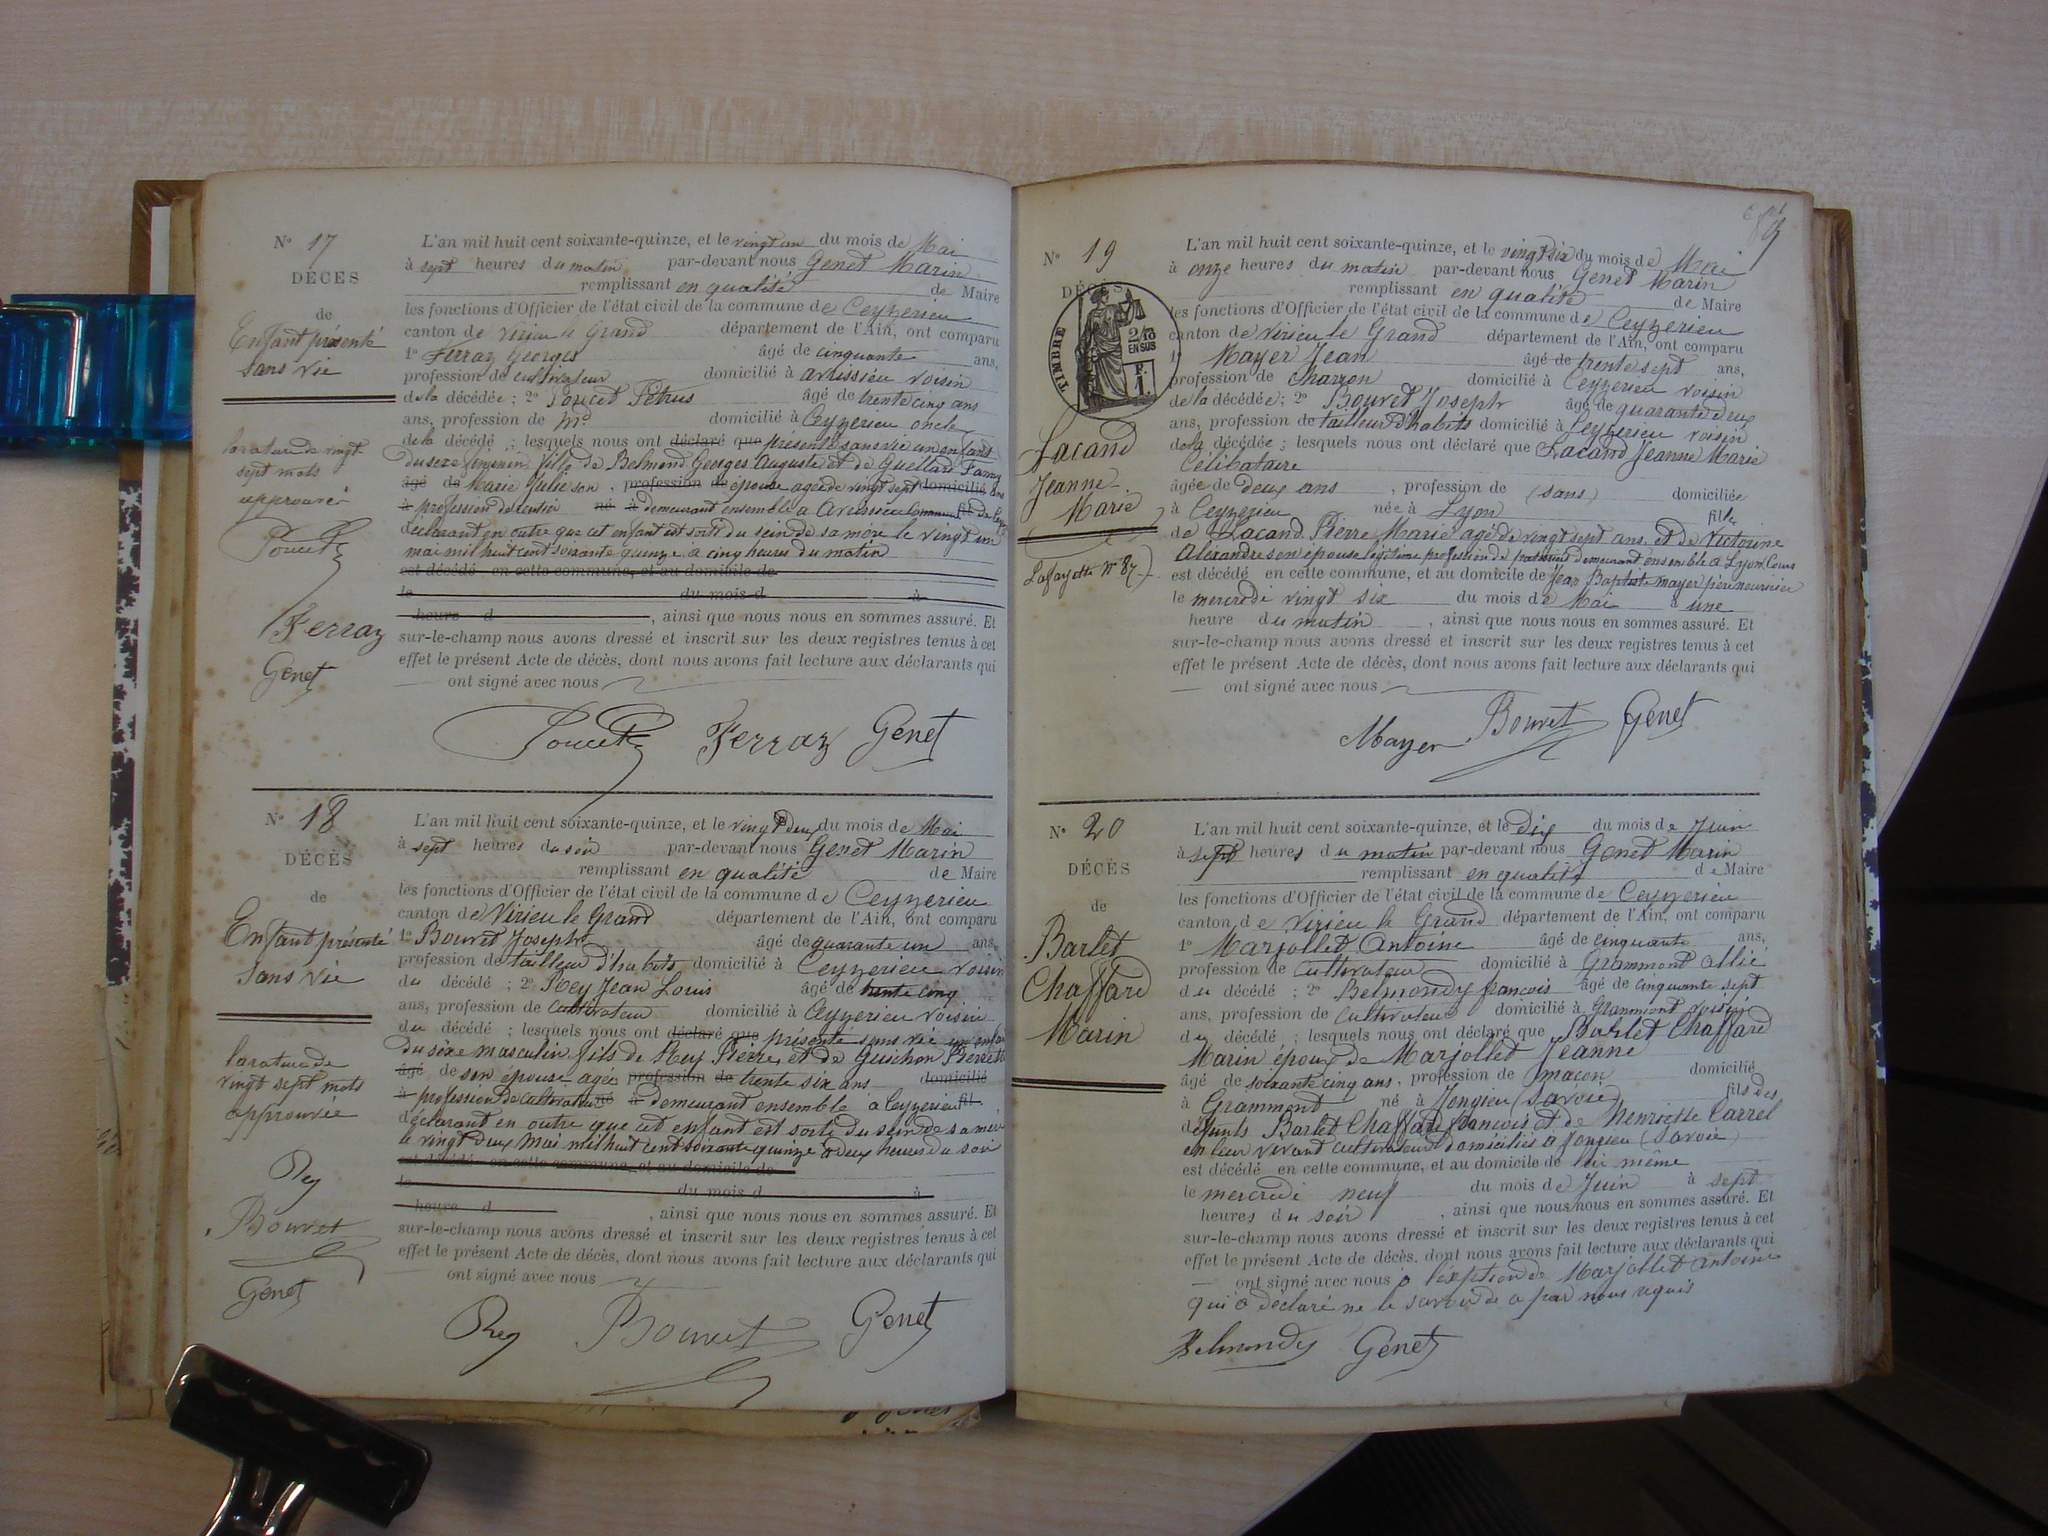 N° 17
DÉCES
de
Enfant présenté
sans vie
la rature de vingt
sept mots
approuvée
Poucet
Ferraz
Genet
L'an mil huit cent soixante-quinze, et le vingt un du mois de Mai
à sept heures du matin par-devant nous Genet Marin
remplissant en qualité de Maire
les fonctions d'Officier de l'état civil de la commune de Ceyzerieu
canton de Virieu le Grand département de l'Ain, ont comparu
1° Ferraz Georges âgé de cinquante ans,
profession de cultivateur domicilié à avrissieu voisin
de la décédée ; 2° Poucet Pétrus âgé de trente cinq ans
ans, profession de md domicilié à Ceyzerieu oncle
de la décédé ; lesquels nous ont déclaré que présenté sans vie un enfant
du sexe féminin fille de Belmond Georges Auguste et de Guellard Fanny
âgé de Marie Julie son , profession de épouse agée de vingt sept domicilié ans
à profession de rentier né à demeurant ensemble à Avrissieu
déclarant en outre que cet enfant est sorti du sein de sa mère le vingt un
mai mil huit cent soixante quinze à cinq heures du matin
est décédé en cette commune, et au domicile de
le du mois d à
heure d , ainsi que nous nous en sommes assuré. Et
sur-le-champ nous avons dressé et inscrit sur les deux registres tenus à cet
effet le présent Acte de décès, dont nous avons fait lecture aux déclarants qui
ont signé avec nous
Poucet Ferraz Genet
N° 18
DÉCÈS
de
Enfant présenté
sans vie
la rature de
vingt sept mots
approuvée
Rey
Bouvet
Genet
L'an mil huit cent soixante-quinze, et le vingt deux du mois de Mai
à sept heures du soir par-devant nous Genet Marin
remplissant en qualité de Maire
les fonctions d'Officier de l'état civil de la commune de Ceyzerieu
canton de Virieu le Grand département de l'Ain, ont comparu
1° Bouvet Joseph âgé de quarante un ans,
profession de tailleur d'habits domicilié à Ceyzerieu voisin
du décédé ; 2° Rey Jean Louis âgé de trente cinq
ans, profession de cultivateur domicilié à Ceyzerieu voisin
du décédé ; lesquels nous ont déclaré que présenté sans vie un enfant
du sexe masculin fils de Rey Pierre et de Guichon Pierrette
âgé de son épouse agée profession de trente six ans domicilié
à profession de cultivateur né à demeurant ensemble à Ceyzerieu fil
déclarant en outre que cet enfant est sorti du sein de sa mère
le vingt deux Mai mil huit cent soixante quinze à deux heures du soir
est décédé en cette commune, et au domicile de
le du mois d à
heure d , ainsi que nous nous en sommes assuré. Et
sur-le-champ nous avons dressé et inscrit sur les deux registres tenus à cet
effet le présent Acte de décès, dont nous avons fait lecture aux déclarants qui
ont signé avec nous
Rey Bouvet Genet
N° 19
DÉCÈS
TIMBRE
2/10
EN SUS
F.
1.
Lacand
Jeanne
Marie
Lafayette N° 87
L'an mil huit cent soixante-quinze, et le vingt six du mois de Mai
à onze heures du matin par-devant nous Genet Marin
remplissant en qualité de Maire
les fonctions d'Officier de l'état civil de la commune de Ceyzerieu
canton de Virieu le Grand département de l'Ain, ont comparu
1° Mayer Jean âgé de trente sept ans,
profession de charron domicilié à Ceyzerieu voisin
de la décédée ; 2° Bouvet Joseph âgé de quarante deux
ans, profession de tailleur d'habits domicilié à Ceyzerieu voisin
de la décédée ; lesquels nous ont déclaré que Lacand Jeanne Marie
Célibataire
âgée de deux ans , profession de (sans) domiciliée
à Ceyzerieu née à Lyon fille
de Lacand Pierre Marie agé de vingt sept ans et de Victorine
Alexandre son épouse légitime profession de demeurant ensemble à Lyon Cours
est décédé en cette commune, et au domicile de Jean Baptiste mayer père meunier
le mercredi vingt six du mois de Mai à une
heure du matin , ainsi que nous nous en sommes assuré. Et
sur-le-champ nous avons dressé et inscrit sur les deux registres tenus à cet
effet le présent Acte de décès, dont nous avons fait lecture aux déclarants qui
ont signé avec nous
Mayer Bouvet Genet
N° 20
DÉCÈS
de
Barlet
Chaffard
Marin
L'an mil huit cent soixante-quinze, et le Dix du mois de Juin
à sept heures du matin par-devant nous Genet Marin
remplissant en qualité de Maire
les fonctions d'Officier de l'état civil de la commune de Ceyzerieu
canton de Virieu le Grand département de l'Ain, ont comparu
1° Marjollet Antoine âgé de cinquante ans,
profession de cultivateur domicilié à Grammont allié
du décédé ; 2° Belmondy françois âgé de cinquante sept
ans, profession de cultivateur domicilié à Grammont voisin
du décédé ; lesquels nous ont déclaré que Barlet Chaffard
Marin époux de Marjollet Jeanne
âgé de soixante cinq ans, profession de maçon domicilié
à Grammont né à Jongieu (Savoie) fils des
défunts Barlet Chaffard françois et de Henriette Carrel
en leur vivant cultivateurs domiciliés à Jongieu (Savoie)
est décédé en cette commune, et au domicile de lui même
le mercredi neuf du mois de Juin à sept
heures du soir , ainsi que nous nous en sommes assuré. Et
sur-le-champ nous avons dressé et inscrit sur les deux registres tenus à cet
effet le présent Acte de décès, dont nous avons fait lecture aux déclarants qui
ont signé avec nous à l'exption de Marjollet antoine
qui a déclaré ne le savoir de a par nous requis
Belmondy Genet